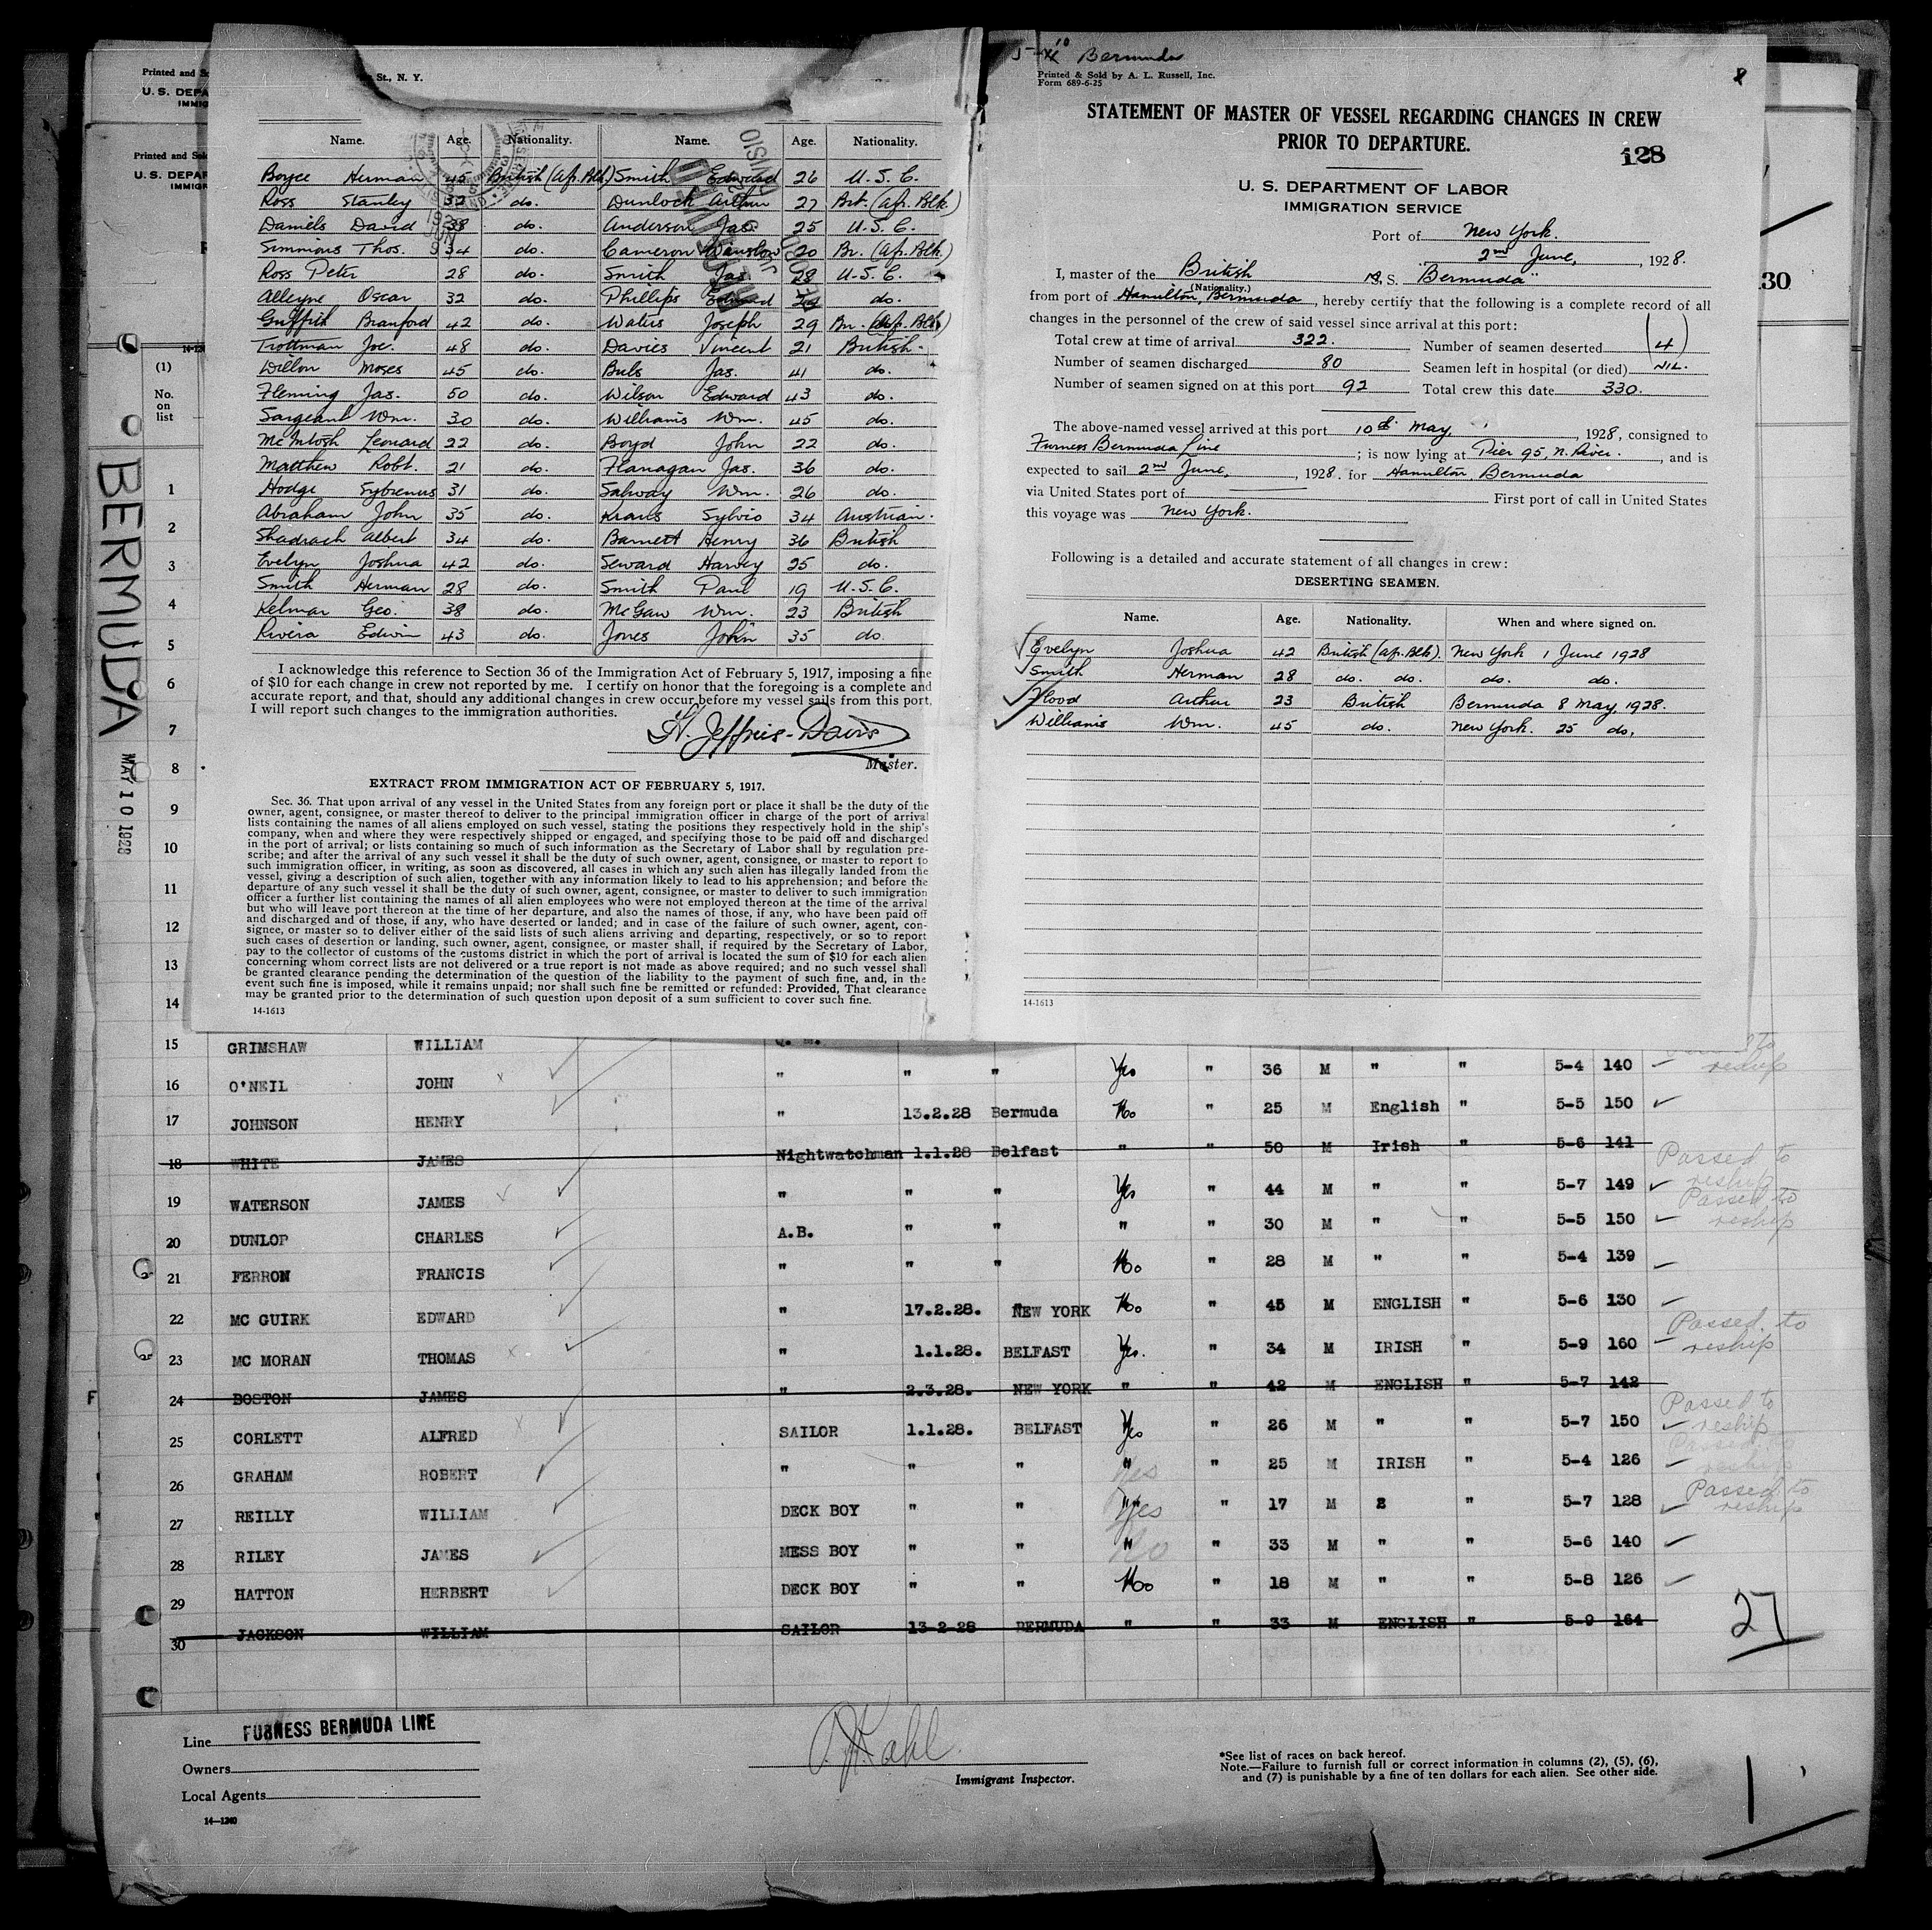 Printed and So
U. S. DEPA
IMMIG
St., N. Y.
Printed and Sol
U. S. DEPAR
IMMIGR
Name. Age. Nationality. Name. Age. Nationality.
Boyce Herman 45 British (Af. Blk.) Smith Edward 26 U.S.C.
Ross Stanley 32 do. Dunlock Arthur 27 Brt. (Af. Blk.)
Daniels David 38 do. Anderson Jas. 25 U.S.C.
Simmons Thos. 34 do. Cameron Winston 20 Br. (Af. Blk.)
Ross Peter 28 do. Smith Jas. 28 U.S.C.
Alleyne Oscar 32 do. Phillips Edward do.
Griffith Branford 42 do. Waters Joseph 29 Br. (Af. Blk.)
Trottman Joe. 48 do. Davies Vincent 21 British.
Dillon Moses 45 do. Buls Jas. 41 do.
Fleming Jas. 50 do. Wilson Edward 43 do.
Sargeant Wm. 30 do. Williams Wm. 45 do.
McIntosh Leonard 22 do. Boyd John 22 do.
Matthew Robt. 21 do. Flanagan Jas. 36 do.
Hodge Sybrenus 31 do. Salway Wm. 26 do.
Abraham John 35 do. Kraus Sylvio 34 Austrian.
Shadrach Albert 34 do. Barnett Henry 36 British
Evelyn Joshua 42 do. Seward Harvey 25 do.
Smith Herman 28 do. Smith Paul 19 U.S.C.
Kelmar Geo. 38 do. McGaw Wm. 23 British
Rivera Edwin 43 do. Jones John 35 do.
I acknowledge this reference to Section 36 of the Immigration Act of February 5, 1917, imposing a fine
of $10 for each change in crew not reported by me. I certify on honor that the foregoing is a complete and
accurate report, and that, should any additional changes in crew occur before my vessel sails from this port,
I will report such changes to the immigration authorities.
H. Jeffries-Davis
Master.
EXTRACT FROM IMMIGRATION ACT OF FEBRUARY 5, 1917.
Sec. 36. That upon arrival of any vessel in the United States from any foreign port or place it shall be the duty of the
owner, agent, consignee, or master thereof to deliver to the principal immigration officer in charge of the port of arrival
lists containing the names of all aliens employed on such vessel, stating the positions they respectively hold in the ship's
company, when and where they were respectively shipped or engaged, and specifying those to be paid off and discharged
in the port of arrival; or lists containing so much of such information as the Secretary of Labor shall by regulation pre-
scribe; and after the arrival of any such vessel it shall be the duty of such owner, agent, consignee, or master to report to
such immigration officer, in writing, as soon as discovered, all cases in which any such alien has illegally landed from the
vessel, giving a description of such alien, together with any information likely to lead to his apprehension; and before the
departure of any such vessel it shall be the duty of such owner, agent, consignee, or master to deliver to such immigration
officer a further list containing the names of all alien employees who were not employed thereon at the time of the arrival
but who will leave port thereon at the time of her departure, and also the names of those, if any, who have been paid off
and discharged and of those, if any, who have deserted or landed; and in case of the failure of such owner, agent, con-
signee, or master so to deliver either of the said lists of such aliens arriving and departing, respectively, or so to report
such cases of desertion or landing, such owner, agent, consignee, or master shall, if required by the Secretary of Labor,
pay to the collector of customs of the customs district in which the port of arrival is located the sum of $10 for each alien
concerning whom correct lists are not delivered or a true report is not made as above required; and no such vessel shall
be granted clearance pending the determination of the question of the liability to the payment of such fine, and, in the
event such fine is imposed, while it remains unpaid; nor shall such fine be remitted or refunded: Provided, That clearance
may be granted prior to the determination of such question upon deposit of a sum sufficient to cover such fine.
14-1613
Bermuda
Printed & Sold by A. L. Russell, Inc.
Form 689-6-25
8
STATEMENT OF MASTER OF VESSEL REGARDING CHANGES IN CREW
PRIOR TO DEPARTURE.
128
U. S. DEPARTMENT OF LABOR
IMMIGRATION SERVICE
Port of New York.
2nd June, , 1928.
I, master of the British S. S. "Bermuda"
(Nationality.)
from port of Hamilton, Bermuda, hereby certify that the following is a complete record of all
changes in the personnel of the crew of said vessel since arrival at this port:
Total crew at time of arrival 322. Number of seamen deserted (4)
Number of seamen discharged 80 Seamen left in hospital (or died) NIL.
Number of seamen signed on at this port 92 Total crew this date 330.
The above-named vessel arrived at this port 10th May, , 1928, consigned to
Furness Bermuda Line ; is now lying at Pier 95, N. River. , and is
expected to sail 2nd June, , 1928. for Hamilton, Bermuda
via United States port of First port of call in United States
this voyage was New York.
Following is a detailed and accurate statement of all changes in crew:
DESERTING SEAMEN.
Name. Age. Nationality. When and where signed on.
Evelyn Joshua 42 British (Af. Blk). New York 1 June 1928
Smith Herman 28 do. do. do. do.
Flood Arthur 23 British Bermuda 8 May, 1928.
Williams Wm. 45 do. New York. 25 do.
14-1613
30
(1)
No.
on
list
BERMUDA
MAY 10 1928
1
2
3
4
5
6
7
8
9
10
11
12
13
14
15 GRIMSHAW WILLIAM Q. M.
16 O'NEIL JOHN " " " Yes " 36 M " " 5-4 140 reship
17 JOHNSON HENRY " 13.2.28 Bermuda No " 25 M English " 5-5 150
18 WHITE JAMES Nightwatchman 1.1.28 Belfast " " 50 M Irish " 5-6 141
19 WATERSON JAMES " " " Yes " 44 M " " 5-7 149 Passed to reship
20 DUNLOP CHARLES A.B. " " " " 30 M " " 5-5 150 Passed to reship
21 FERRON FRANCIS " " " No " 28 M " " 5-4 139
22 MC GUIRK EDWARD " 17.2.28. NEW YORK No " 45 M ENGLISH " 5-6 130
23 MC MORAN THOMAS " 1.1.28. BELFAST Yes. " 34 M IRISH " 5-9 160 Passed to reship
F
24 BOSTON JAMES " 2.3.28. NEW YORK " " 42 M ENGLISH " 5-7 142
25 CORLETT ALFRED SAILOR 1.1.28. BELFAST Yes " 26 M " " 5-7 150 Passed to reship
26 GRAHAM ROBERT " " " " Yes " 25 M IRISH " 5-4 126 Passed to reship
27 REILLY WILLIAM DECK BOY " " " Yes " 17 M 2 " 5-7 128 Passed to reship
28 RILEY JAMES MESS BOY " " " No " 33 M " " 5-6 140
29 HATTON HERBERT DECK BOY " " No " 18 M " " 5-8 126
30 JACKSON WILLIAM SAILOR 13-2-28 BERMUDA " " 33 M ENGLISH " 5-9 164
27
Line FURNESS BERMUDA LINE
Owners
Local Agents
14-1240
Kahl
Immigrant Inspector.
*See list of races on back hereof.
Note.—Failure to furnish full or correct information in columns (2), (5), (6),
and (7) is punishable by a fine of ten dollars for each alien. See other side.
1